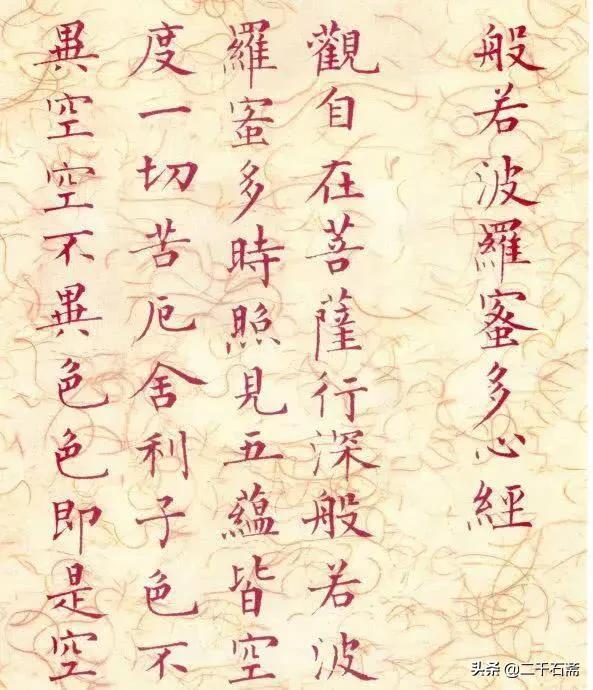 般若波羅蜜多心經
觀自在菩薩行深般若波
羅蜜多時照見五蘊皆空
度一切苦厄舍利子色不
異空空不異色色即是空
头条 @二千石斋